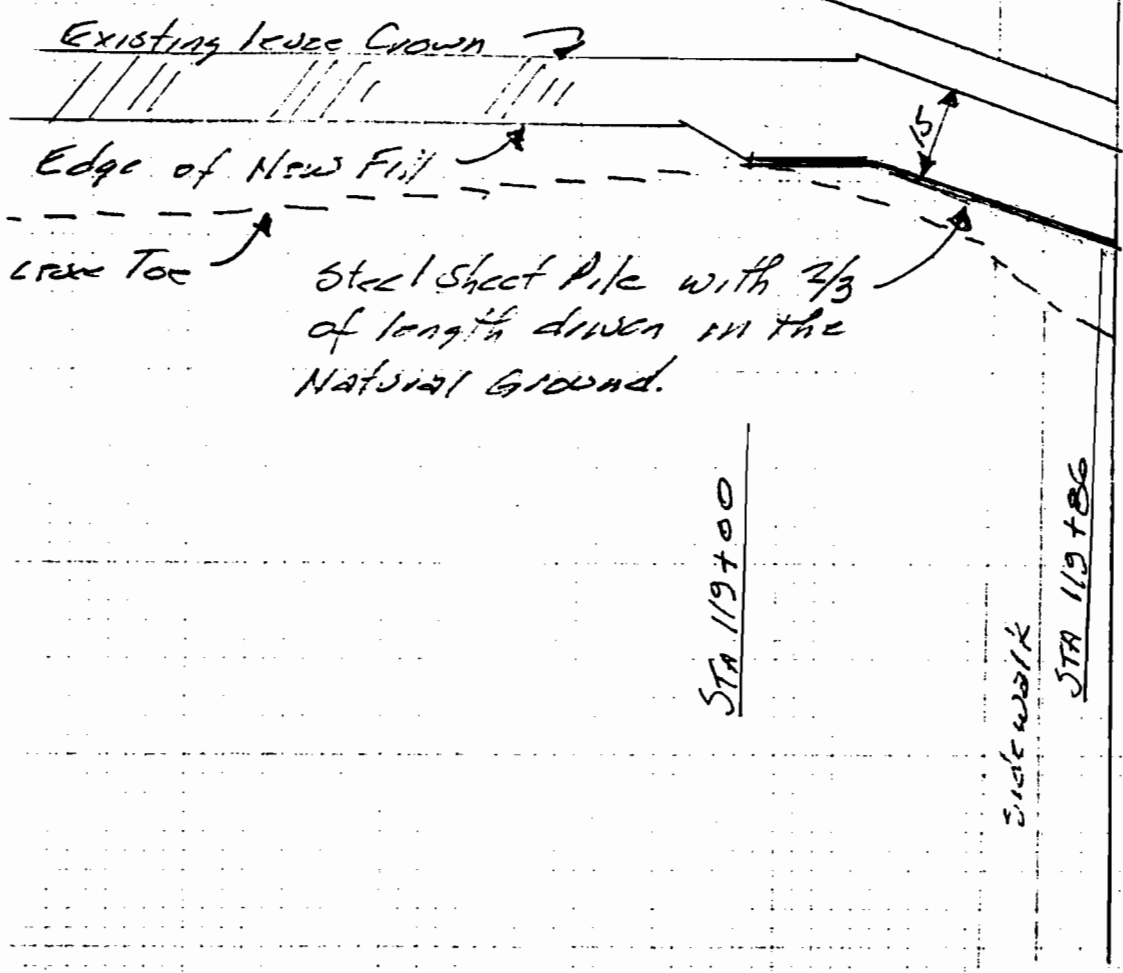 Existing levee Crown
15
Edge of New Fill
Levee Toe
Steel Sheet Pile with 2/3
of length driven in the
Natural Ground.
STA 119+00
Sidewalk
STA 119+86